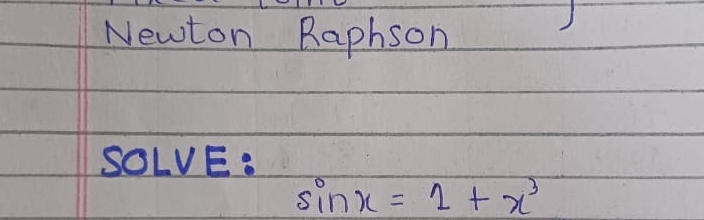 Newton Raphson
SOLVE:
sinx = 1 + x³